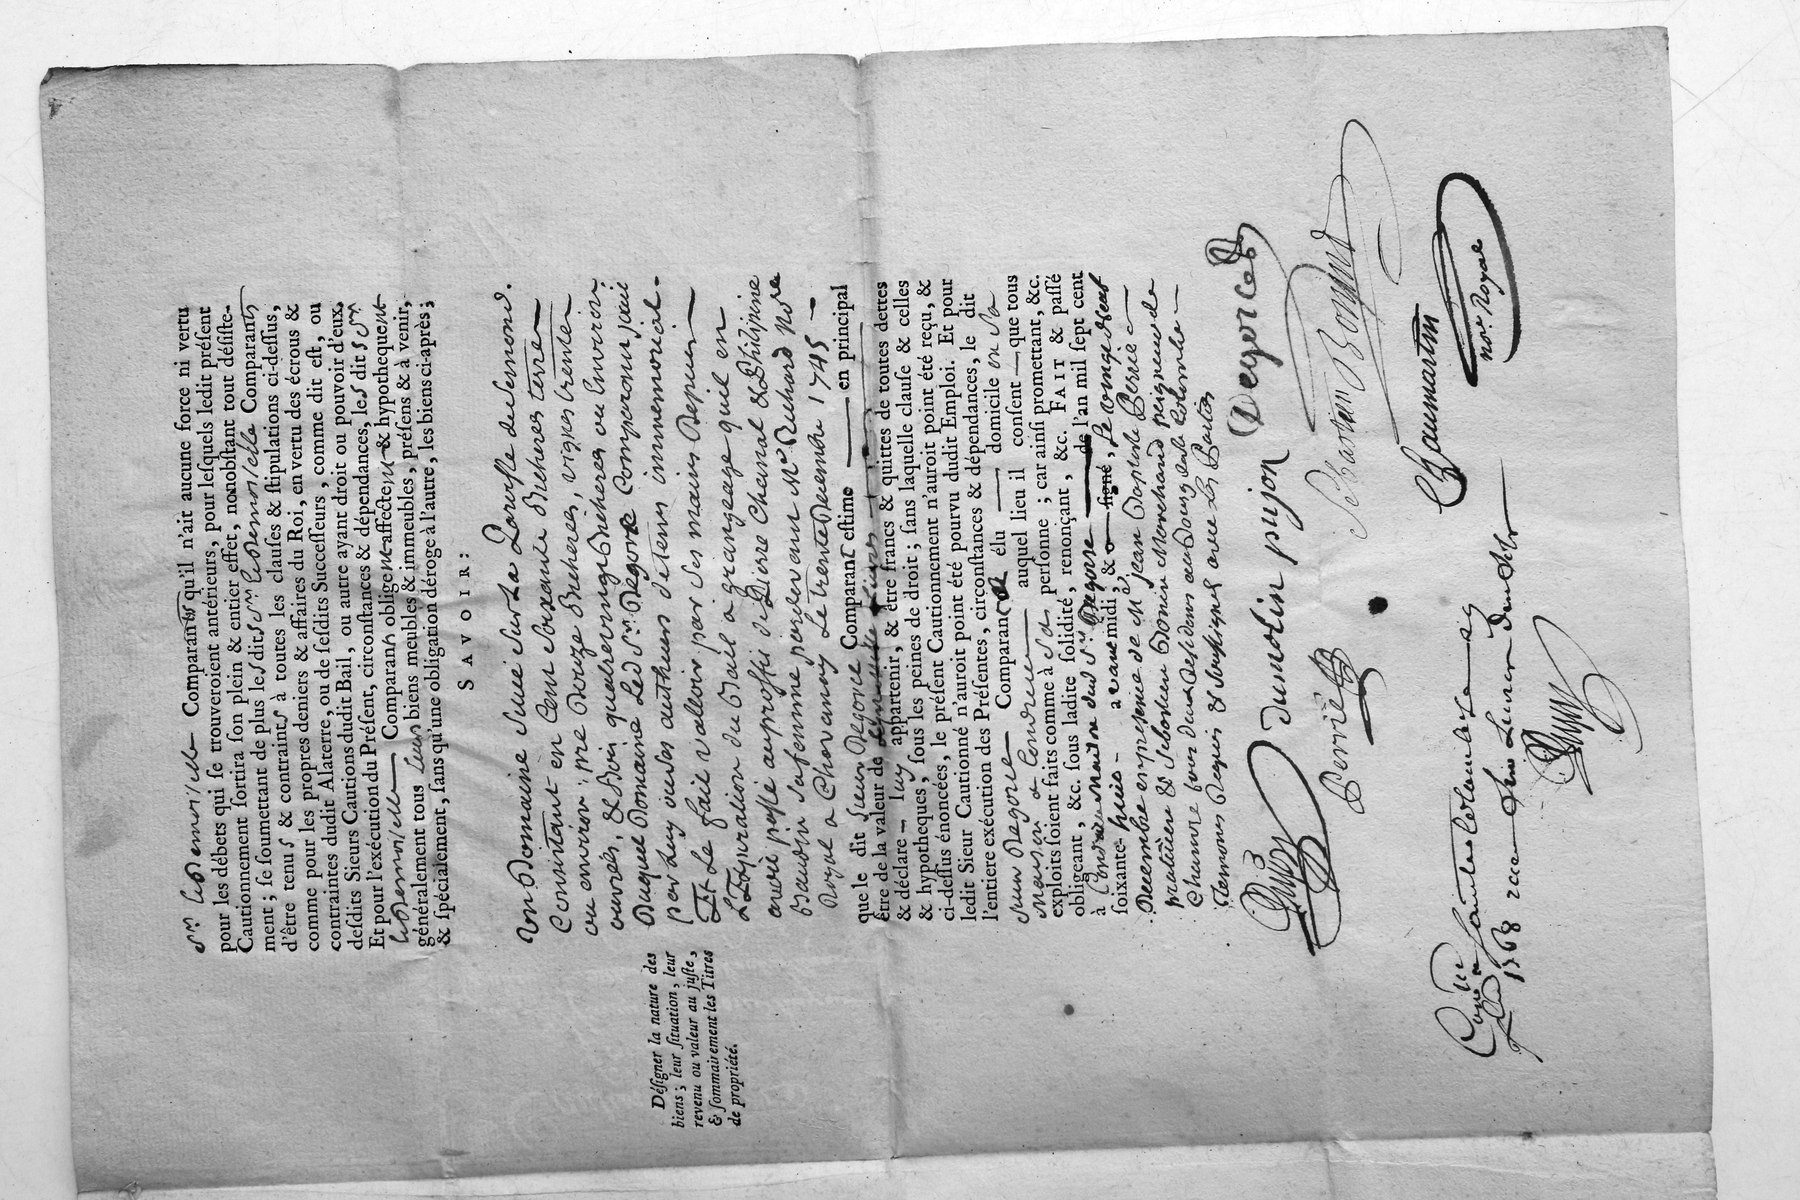 Sr. & Demoiselle Comparants qu'il n'ait aucune force ni vertu
pour les débets qui se trouveroient antérieurs, pour lesquels ledit présent
Cautionnement sortira son plein & entier effet, nonobstant tout désiste-
ment; se soumettant de plus lesdits Sr. & Demoiselle Comparants
d'être tenus & contraints à toutes les clauses & stipulations ci-dessus,
comme pour les propres deniers & affaires du Roi, en vertu des écrous &
contraintes dudit Alaterre, ou de sesdits Successeurs, comme dit est, ou
desdits Sieurs Cautions dudit Bail, ou autre ayant droit ou pouvoir d'eux.
Et pour l'exécution du Présent, circonstances & dépendances, lesdits Sr.
& Demoiselle Comparans obligent affectent & hypothequent
généralement tous leurs biens meubles & immeubles, présens & à venir,
& spécialement, sans qu'une obligation déroge à l'autre, les biens ci-après;
SAVOIR:
Désigner la nature des
biens; leur situation, leur
revenu ou valeur au juste,
& sommairement les Titres
de propriété.
Un Domaine Situé Sur La Paroisse de
Consistant en Cent Soixante Bicherées terre
ou environ; pré Douze Bicherées, vignes trente
ouvrées, & Bois quatre vingt Bicherées ou Environ
Duquel Domaine Led Sr. Degorce Comparant jouit
par Luy ou ses autheurs detems immemorial.
Et Le fait valloir par ses mains Depuis
L'Expiration du Bail a grangeage quil en
avoit passé auproffit de Pierre Chenal & Philipine
Baudin sa femme pardevant Me. Richard Nore
Royal a Chavanay Le trente Decembre 1745
que le dit Sieur Degorce Comparant estime en principal
être de la valeur de livres
& déclare luy appartenir, & être francs & quittes de toutes dettes
& hypotheques, sous les peines de droit; sans laquelle clause & celles
ci-dessus énoncées, le présent Cautionnement n'auroit point été reçu, &
ledit Sieur Cautionné n'auroit point été pourvu dudit Emploi. Et pour
l'entiere exécution des Présentes, circonstances & dépendances, le dit
Sieur Degorce Comparant a élu domicile en sa
Maison a Condrieu auquel lieu il consent que tous
exploits soient faits comme à sa personne; car ainsi promettant, &c.
obligeant, &c. sous ladite solidité, renonçant, &c. FAIT & passé
à Condrieu Maison dud Sr. Degorce de l'an mil sept cent
soixante-huit avant midi, & a signé, Le vingt Neuf
Decembre en presence de Me. Jean Baptiste Perrié
praticien & Sebastien Bonin Marchand peigneur de
Chanvre tous deux Residens au Bourg
Temoins Requis & Soussignés avec Les Parties
dumolin pujon Degorce
Perrié Sébastian Bonin
Chaumartin
nore. Royal
Conlé
1768